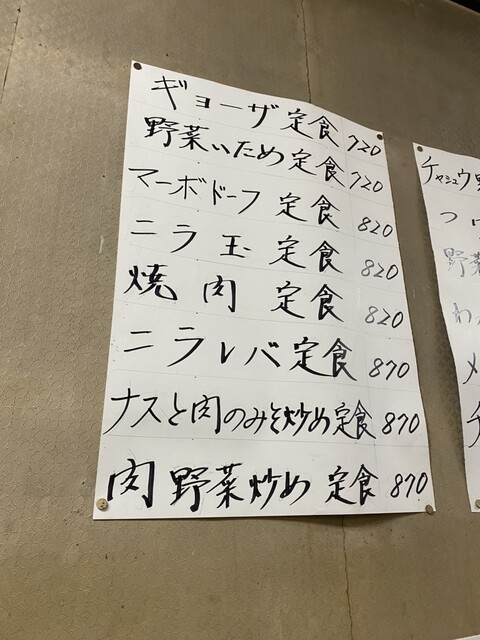 ギョーザ定食 720
野菜いため定食 720
マーボドーフ 定食 820
ニラ玉定食 820
焼肉定食 820
ニラレバ定食 870
ナスと肉のみそ炒め定食 870
肉野菜炒め定食 870
チャシュウ
つ
野菜
わ
メ
チ